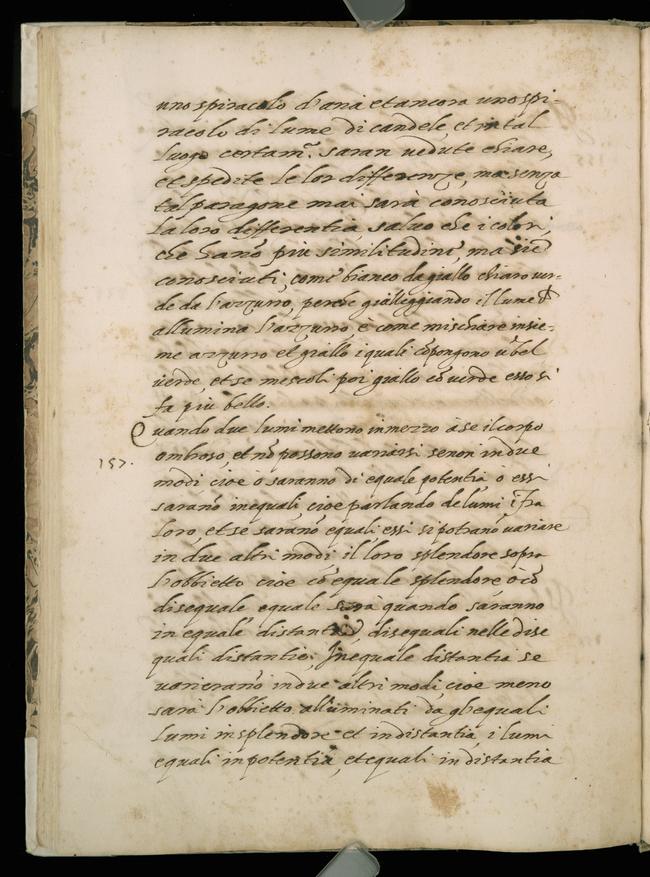 uno spiracolo d'aria et ancora uno spi-
racolo di lume di candele, et in tal
luogo certam.te saran vedute chiare,
et spedite le lor differenze, ma senza
tal paragone mai sarà conosciuta
la loro differentia, salvo che i colori,
che hanò piu similitudine, ma siē
conosciuti, come bianco da giallo chiaro ver-
de da l'azzurro, perche gialleggiando il lume ch̄
allumina l'azzurro, è come mischiare insie-
me azzurro et giallo i quali cōpongono ū bel
verde, et se mescoli poi giallo cō verde esso si
fa piu bello.
Quando due lumi mettono in mezzo à se il corpo
ombroso, et nō possono variarsi se non in due
157.
modi cioe ò saranno di equale potentia, o essi
saranō inequali cioe parlando de lumi ī fra
loro, et se saranō equali essi si potranō variare
in due altri modi il loro splendore sopra
l'obbietto cioe cō equale splendore, ò cō
disequale equale sarà quando saranno
in equale distantia, disequali nelle dise
quali distantie; In equale distantia se
varieranō in due altri modi, cioe meno
sarà l'obbietto alluminati da gl'equali
lumi in splendore et in distantia, i lumi
equali in potentia, et equali in distantia